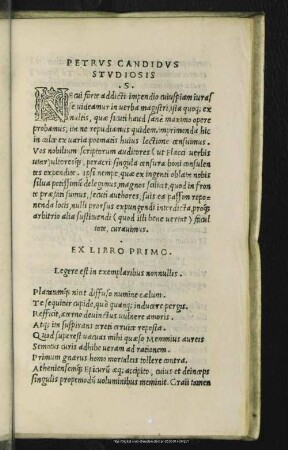 PETRVS CANDIDVS
STVDIOSIS
.S.
NE cui forte addicti impendio cuiuspiam iuras
se videamur in verba magistri, ista quoq; ex
multis, quæ sicuti haud sanè maximo opere
probamus, ita ne repudiamus quidem, imprimenda hic
in calce ex varia poematis huius lectione censuimus.
Vos nobilium scriptorum auditores (ut Placci verbis
utar) ultoresq;, peracri singula censura boni consulen
tes expendite. ipsi nempe, quæ ex ingenti oblatæ nobis
silua potissimũ delegimus, magnos scilicet, quod in fron
te præstitimus, secuti authores, suis ea passim reponen
nenda locis, nulli prorsus expungendi interdicta, proq;
arbitrio alia substituendi (quod illi bene uerint) facul
tate, curauimus.
EX LIBRO PRIMO.
Legere est in exemplaribus nonnullis.
Placatumq; nitet diffuso numine cælum.
Te sequitur cupide, quò quanq; inducere pergis.
Reficit, æterno deuinctus vulnere amoris.
Atq; ita suspirans
Quod superest vacuas mihi quæso Memmius aureis
Semotus curis adhibe veram ad rationem.
Primum graius homo mortaleis tollere contra.
Atheniensemq; Epicurũ æq; accipito, cuius et deinceps
singulis propemodũ voluminibus meminit. Craii tamen